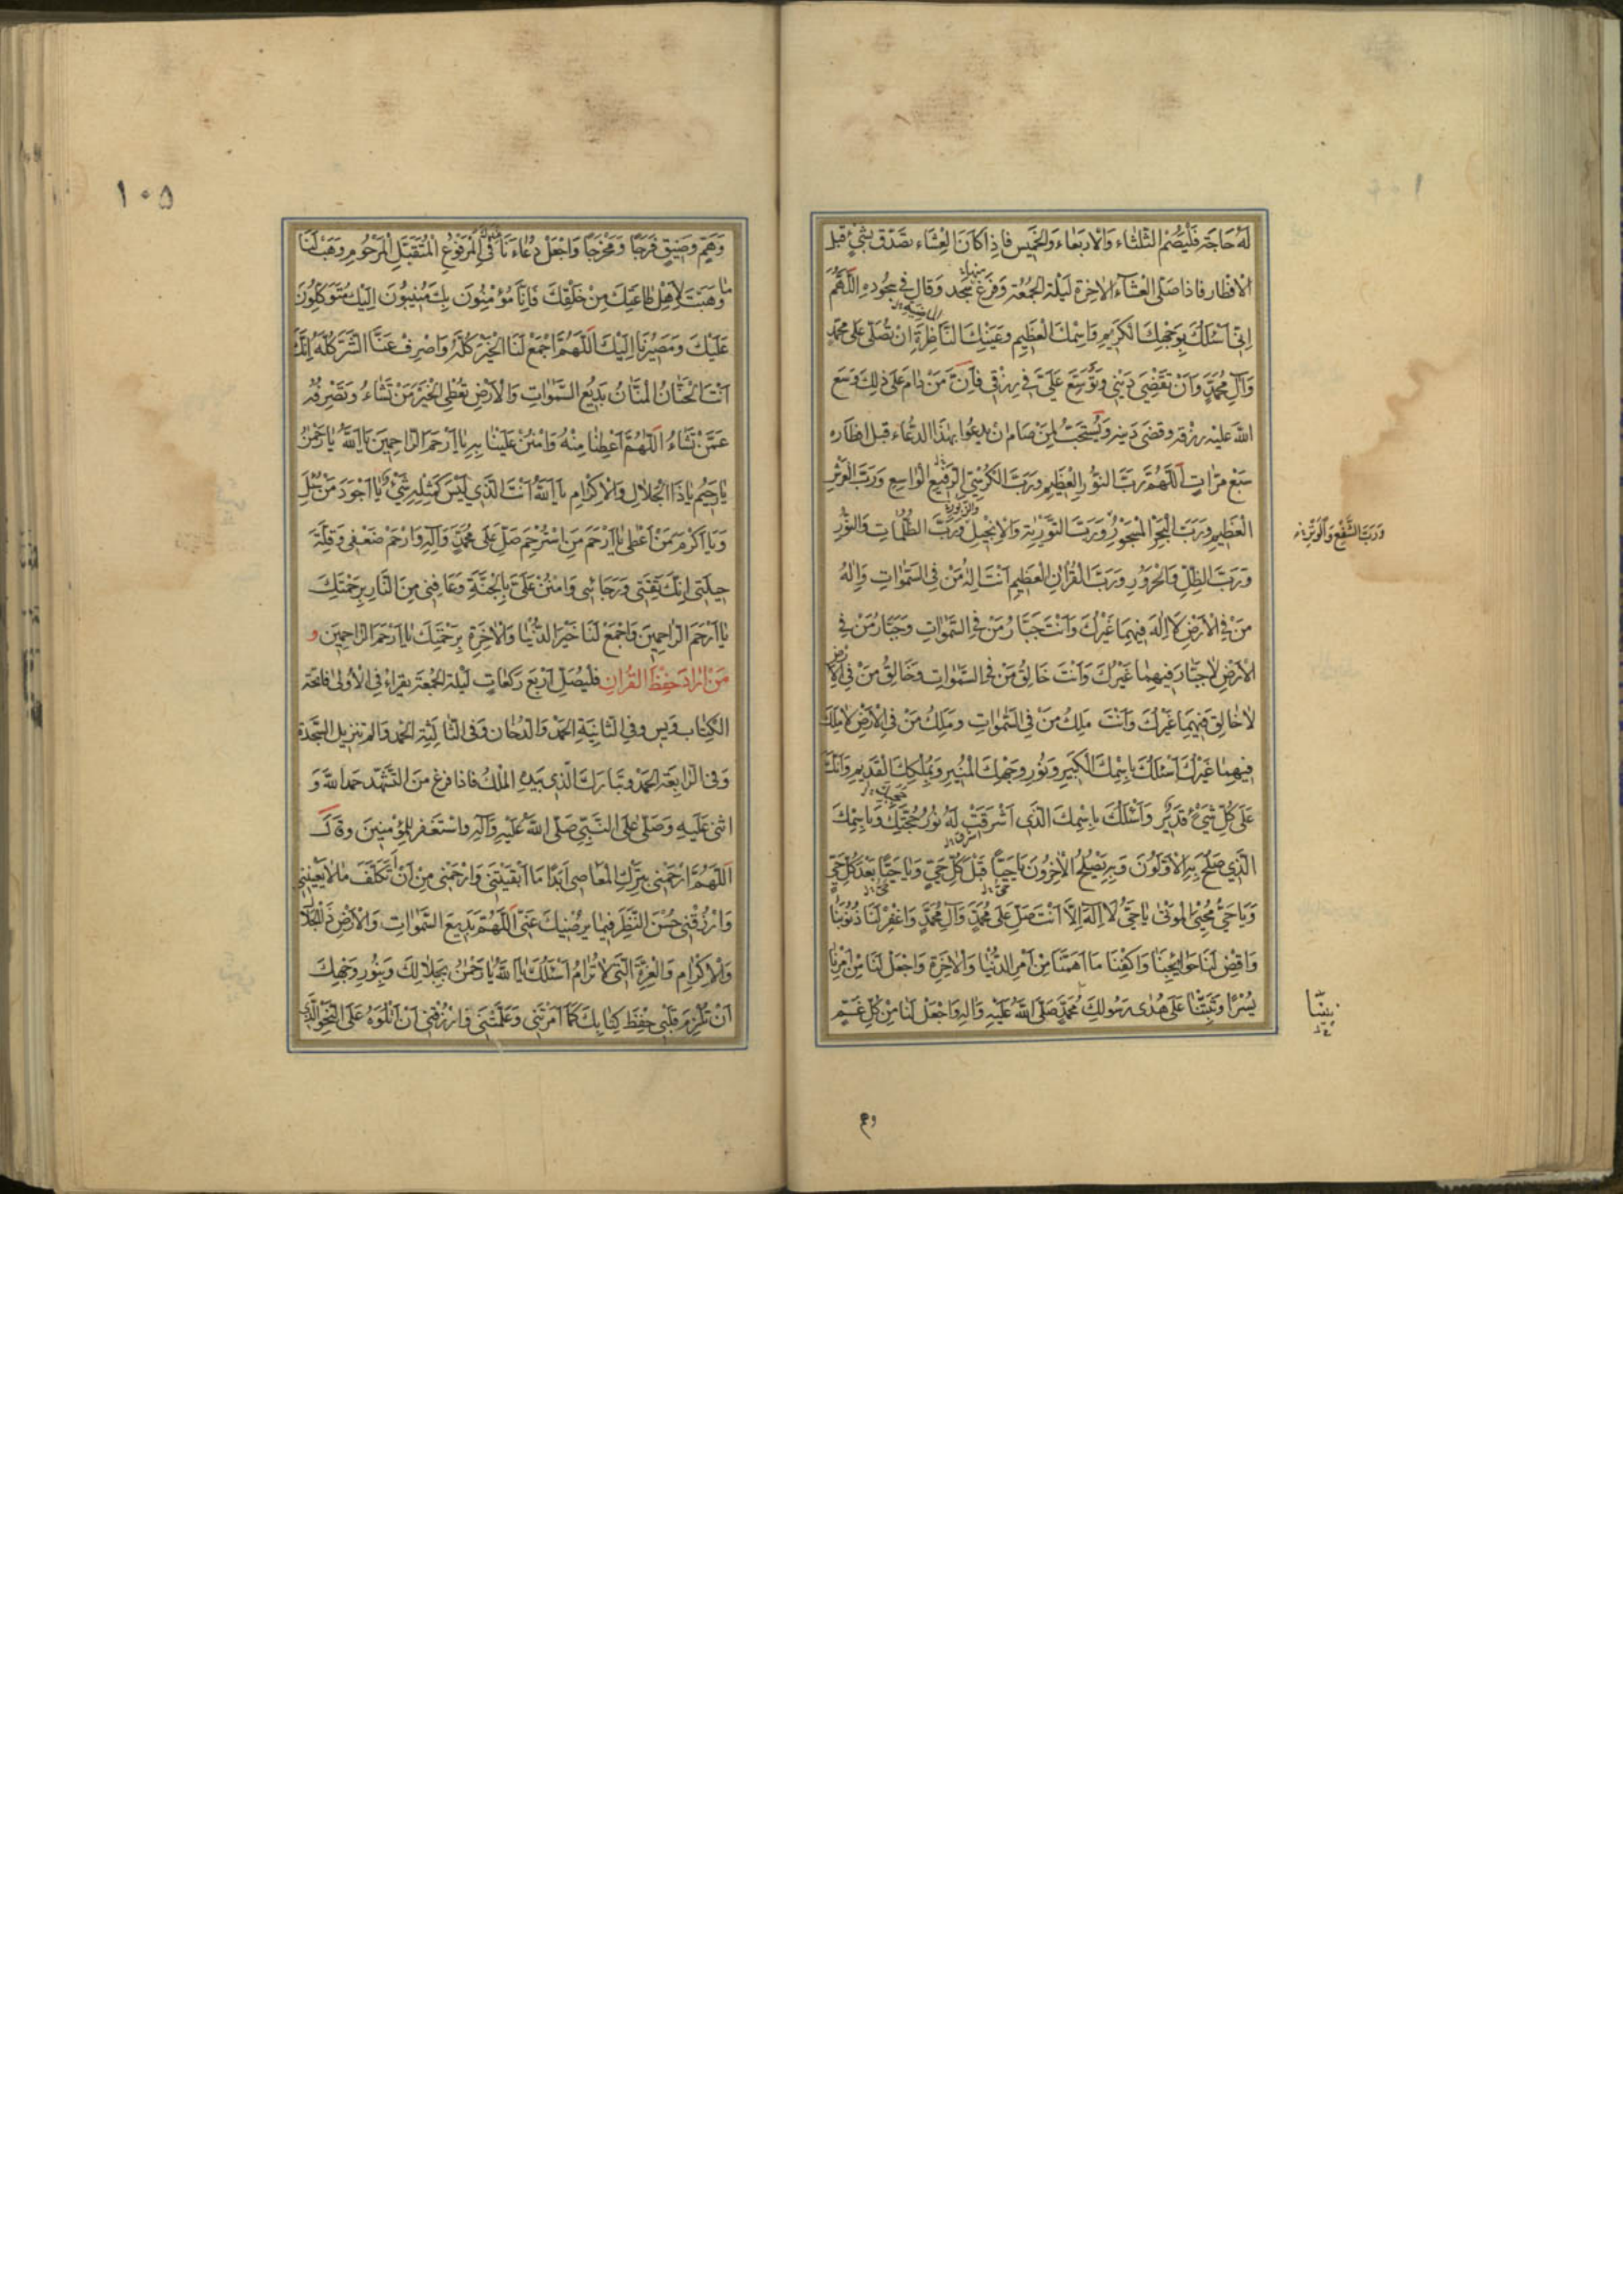 لَهُ حَاجَةٌ فَلْيَصُمِ الثَّلَثَاءَ وَالْاَرْبَعَاءَ وَالْخَمِيسَ فَاِذَا كَانَ الْعِشَاءُ تَصَدَّقَ بِشَيْءٍ قَبْلَ
الْاِفْطَارِ فَاِذَا صَلَّى الْعِشَاءَ الْاٰخِرَةَ لَيْلَةَ الْجُمُعَةِ وَفَرَغَ مِنْهَا سَجَدَ وَقَالَ فِي سُجُودِهِ اَللّٰهُمَّ
اِنِّي اَسْئَلُكَ بِوَجْهِكَ الْكَرِيمِ وَاسْمِكَ الْعَظِيمِ وَعَيْنِكَ النَّاظِرَةِ اَنْ تُصَلِّيَ عَلٰى مُحَمَّدٍ
وَآلِ مُحَمَّدٍ وَاَنْ تَقْضِيَ دَيْنِي وَتُوَسِّعَ عَلَيَّ فِي رِزْقِي فَاِنَّ مَنْ دَامَ عَلٰى ذٰلِكَ وَسَّعَ
اللّٰهُ عَلَيْهِ رِزْقَهُ وَقَضٰى دَيْنَهُ وَيُسْتَحَبُّ لِمَنْ صَامَ اَنْ يَدْعُوَا بِهٰذَا الدُّعَاءِ قَبْلَ اِفْطَارِهِ
سَبْعَ مَرَّاتٍ اَللّٰهُمَّ رَبَّ النُّورِ الْعَظِيمِ وَرَبَّ الْكُرْسِيِّ الرَّفِيعِ الْوَاسِعِ وَرَبَّ الْعَرْشِ
الْعَظِيمِ وَرَبَّ الْبَحْرِ الْمَسْجُورِ وَرَبَّ التَّوْرٰيةِ وَالْاِنْجِيلِ وَالزَّبُورِ وَرَبَّ الظُّلُمَاتِ وَالنُّورِ
وَرَبَّ الشَّفْعِ وَالْوَتْرِ
وَرَبَّ الظِّلِّ وَالْحَرُورِ وَرَبَّ الْقُرْاٰنِ الْعَظِيمِ اَنْتَ اِلٰهُ مَنْ فِي السَّمٰوَاتِ وَاِلٰهُ
مَنْ فِي الْاَرْضِ لَا اِلٰهَ فِيهِمَا غَيْرُكَ وَاَنْتَ جَبَّارُ مَنْ فِي السَّمٰوَاتِ وَجَبَّارُ مَنْ فِي
الْاَرْضِ لَا جَبَّارَ فِيهِمَا غَيْرُكَ وَاَنْتَ خَالِقُ مَنْ فِي السَّمٰوَاتِ وَخَالِقُ مَنْ فِي الْاَرْضِ
لَا خَالِقَ فِيهِمَا غَيْرُكَ وَاَنْتَ مَلِكُ مَنْ فِي السَّمٰوَاتِ وَمَلِكُ مَنْ فِي الْاَرْضِ لَا مَلِكَ
فِيهِمَا غَيْرُكَ اَسْئَلُكَ بِاسْمِكَ الْكَبِيرِ وَنُورِ وَجْهِكَ الْمُنِيرِ وَبِمُلْكِكَ الْقَدِيمِ وَاِنَّكَ
عَلٰى كُلِّ شَيْءٍ قَدِيرٌ وَاَسْئَلُكَ بِاسْمِكَ الَّذِي اَشْرَقَتْ لَهُ نُورُ حُجَّتِكَ وَبِاسْمِكَ
الَّذِي صَلَحَ بِهِ الْاَوَّلُونَ وَبِهِ يَصْلُحُ الْاٰخِرُونَ يَا حَيًّا قَبْلَ كُلِّ حَيٍّ وَيَا حَيًّا بَعْدَ كُلِّ حَيٍّ
وَيَا حَيُّ مُحْيِيَ الْمَوْتٰى يَا حَيُّ لَا اِلٰهَ اِلَّا اَنْتَ صَلِّ عَلٰى مُحَمَّدٍ وَآلِ مُحَمَّدٍ وَاغْفِرْ لَنَا ذُنُوبَنَا
وَاقْضِ لَنَا حَوَائِجَنَا وَاكْفِنَا مَا اَهَمَّنَا مِنْ اَمْرِ الدُّنْيَا وَالْاٰخِرَةِ وَاجْعَلْ لَنَا مِنْ اَمْرِنَا
يُسْرًا وَثَبِّتْنَا عَلٰى هُدٰى رَسُولِكَ مُحَمَّدٍ صَلَّى اللّٰهُ عَلَيْهِ وَاٰلِهِ وَاجْعَلْ لَنَا مِنْ كُلِّ غَمٍّ
وهم
١٠٥
وَهَمٍّ وَضِيقٍ فَرَجًا وَمَخْرَجًا وَاجْعَلْ دُعَاءَنَا فِي الْمَرْفُوعِ الْمُتَقَبَّلِ الْمَرْحُومِ وَهَبْ لَنَا
مَا وَهَبْتَ لِاَهْلِ طَاعَتِكَ مِنْ خَلْقِكَ فَاِنَّا مُؤْمِنُونَ بِكَ مُنِيبُونَ اِلَيْكَ مُتَوَكِّلُونَ
عَلَيْكَ وَمَصِيرُنَا اِلَيْكَ اَللّٰهُمَّ اجْمَعْ لَنَا الْخَيْرَ كُلَّهُ وَاصْرِفْ عَنَّا الشَّرَّ كُلَّهُ اِنَّكَ
اَنْتَ الْحَنَّانُ الْمَنَّانُ بَدِيعُ السَّمٰوَاتِ وَالْاَرْضِ تُعْطِي الْخَيْرَ مَنْ تَشَاءُ وَتَصْرِفُهُ
عَمَّنْ تَشَاءُ اَللّٰهُمَّ اَعْطِنَا مِنْهُ وَامْنُنْ عَلَيْنَا بِهِ يَا اَرْحَمَ الرَّاحِمِينَ يَا اَللّٰهُ يَا رَحْمٰنُ
يَا رَحِيمُ يَا ذَا الْجَلَالِ وَالْاِكْرَامِ يَا اَللّٰهُ اَنْتَ الَّذِي لَيْسَ كَمِثْلِهِ شَيْءٌ يَا اَجْوَدَ مَنْ سُئِلَ
وَيَا اَكْرَمَ مَنْ اَعْطٰى يَا اَرْحَمَ مَنِ اسْتُرْحِمَ صَلِّ عَلٰى مُحَمَّدٍ وَآلِهِ وَارْحَمْ ضَعْفِي وَقِلَّةَ
حِيلَتِي اِنَّكَ ثِقَتِي وَرَجَائِي وَامْنُنْ عَلَيَّ بِالْجَنَّةِ وَعَافِنِي مِنَ النَّارِ بِرَحْمَتِكَ
يَا اَرْحَمَ الرَّاحِمِينَ وَاجْمَعْ لَنَا خَيْرَ الدُّنْيَا وَالْاٰخِرَةِ بِرَحْمَتِكَ يَا اَرْحَمَ الرَّاحِمِينَ و
مَنْ اَرَادَ حِفْظَ الْقُرْاٰنِ فَلْيُصَلِّ اَرْبَعَ رَكَعَاتٍ لَيْلَةَ الْجُمُعَةِ يَقْرَاُ فِي الْاُولٰى فَاتِحَةَ
الْكِتَابِ وَيٰس وَفِي الثَّانِيَةِ الْحَمْدَ وَالدُّخَانَ وَفِي الثَّالِثَةِ الْحَمْدَ وَالم تَنْزِيلَ السَّجْدَةَ
وَفِي الرَّابِعَةِ الْحَمْدَ وَتَبَارَكَ الَّذِي بِيَدِهِ الْمُلْكُ فَاِذَا فَرَغَ مِنَ التَّشَهُّدِ حَمِدَ اللّٰهَ وَ
اَثْنٰى عَلَيْهِ وَصَلّٰى عَلَى النَّبِيِّ صَلَّى اللّٰهُ عَلَيْهِ وَآلِهِ وَاسْتَغْفَرَ لِلْمُؤْمِنِينَ وَقَالَ
اَللّٰهُمَّ ارْحَمْنِي بِتَرْكِ الْمَعَاصِي اَبَدًا مَا اَبْقَيْتَنِي وَارْحَمْنِي مِنْ اَنْ اَتَكَلَّفَ مَا لَا يَعْنِينِي
وَارْزُقْنِي حُسْنَ النَّظَرِ فِيمَا يُرْضِيكَ عَنِّي اَللّٰهُمَّ بَدِيعَ السَّمٰوَاتِ وَالْاَرْضِ ذَا الْجَلَالِ
وَالْاِكْرَامِ وَالْعِزَّةِ الَّتِي لَا تُرَامُ اَسْئَلُكَ يَا اَللّٰهُ يَا رَحْمٰنُ بِجَلَالِكَ وَبِنُورِ وَجْهِكَ
اَنْ تُلْزِمَ قَلْبِي حِفْظَ كِتَابِكَ كَمَا اَمَرْتَنِي وَعَلَّمْتَنِي وَارْزُقْنِي اَنْ اَتْلُوَهُ عَلَى النَّحْوِ الَّذِي